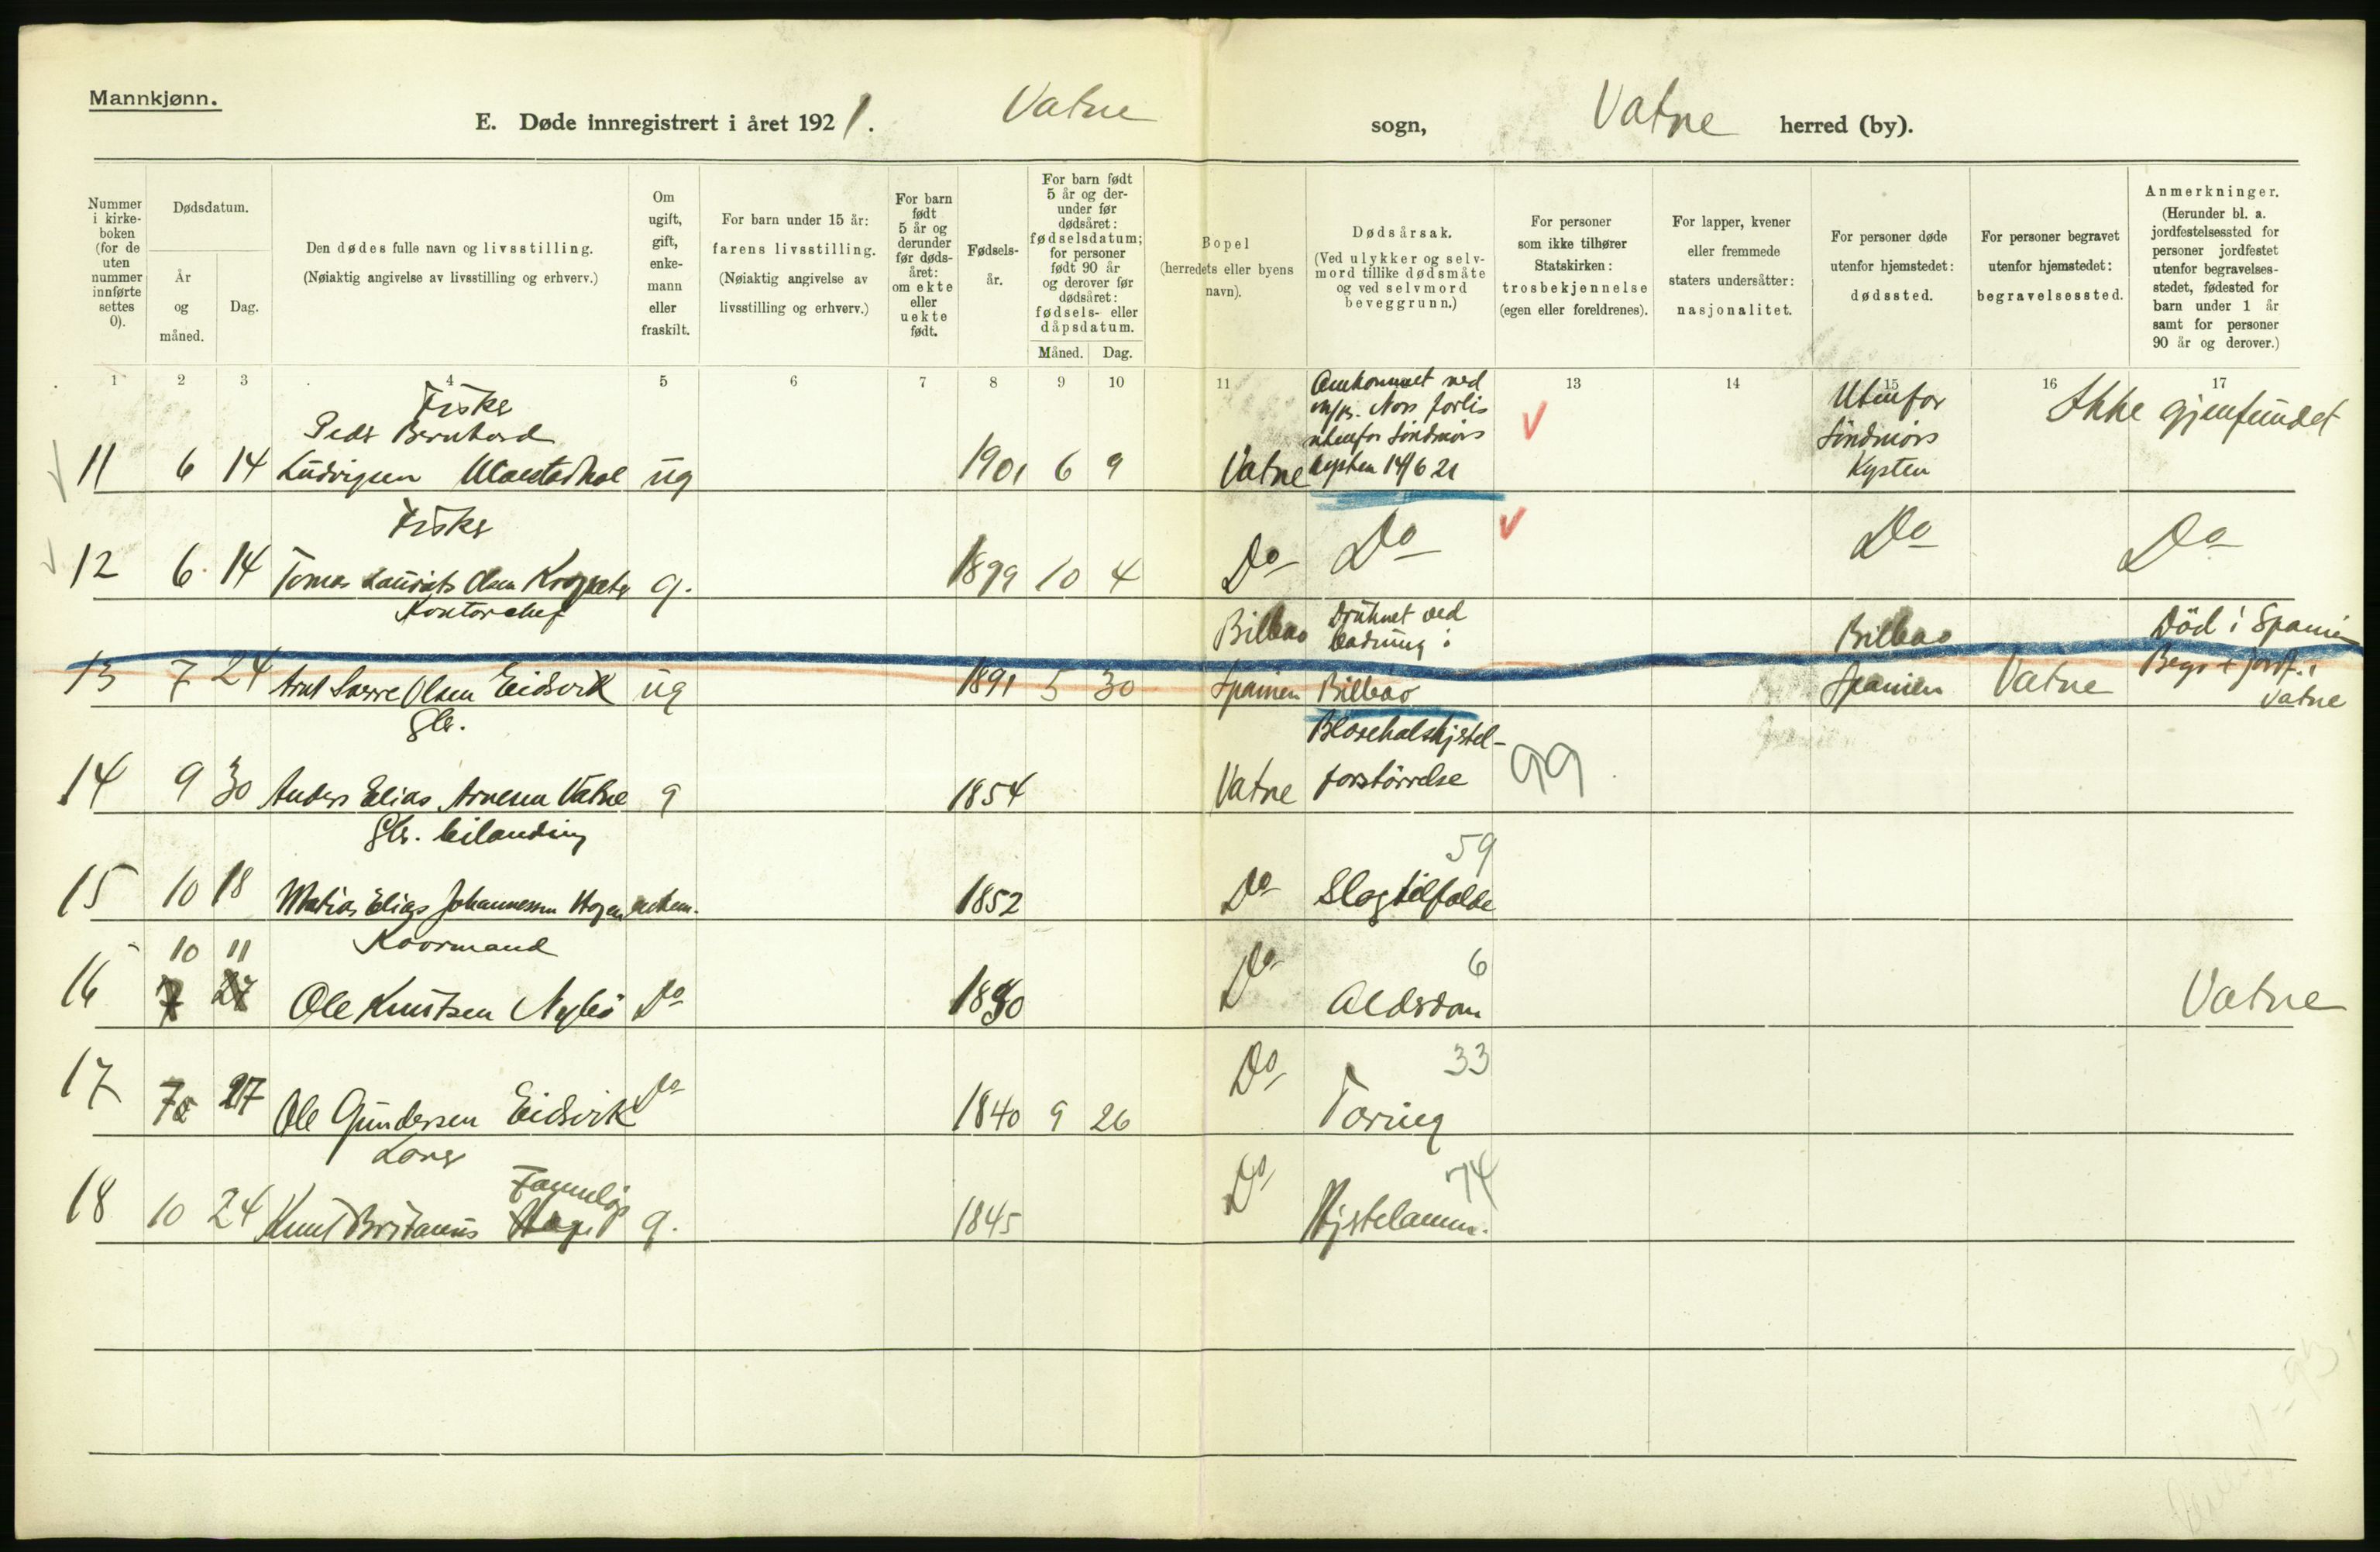 Mannkjønn.
E. Døde innregistrert i året 1921. Vatne sogn, Vatne herred (by).
Nummer i kirke- boken (for de uten nummer innførte settes 0).
Dødsdatum.
År og måned.
Dag.
Den dødes fulle navn og livsstilling.
(Nøiaktig angivelse av livsstilling og erhverv.)
Om ugift, gift, enke- mann eller fraskilt.
For barn under 15 år:
farens livsstilling.
(Nøiaktig angivelse av
livsstilling og erhverv.)
For barn født 5 år og derunder før døds- året: om ekte eller uekte født.
Fødsels- år.
For barn født 5 år og der- under før dødsåret: fødselsdatum; for personer født 90 år og derover før dødsåret: fødsels- eller dåpsdatum.
Måned. Dag.
Bopel
(herredets eller byens
navn).
Dødsårsak.
(Ved ulykker og selv-
mord tillike dødsmåte
og ved selvmord
beveggrunn.)
For personer
som ikke tilhører
Statskirken:
trosbekjennelse
(egen eller foreldrenes).
For lapper, kvener
eller fremmede
staters undersåtter:
nasjonalitet.
For personer døde
utenfor hjemstedet:
dødssted.
For personer begravet
utenfor hjemstedet:
begravelsessted.
Anmerkninger.
(Herunder bl. a.
jordfestelsessted for
personer jordfestet
utenfor begravelses-
stedet, fødested for
barn under 1 år
samt for personer
90 år og derover.)
1 2 3 4 5 6 7 8 9 10 11 13 14 15 16 17
Fisker
Peder Bernhard
11 6 14 Ludvigsen ug 1901 6 9 Vatne
Omkommet ved
forlis
utenfor Söndmörs
kysten 14/6 21
Utenfor
Söndmörs
Kysten
Ikke gjenfundet
Fisker
12 6 14 Tomas Laurits Olsen g. 1899 10 4 Do Do Do Do
Kontorchef
13 7 24 Arnt Sverre Olsen Eidsvik ug 1891 5 30
Bilbao
Spanien
Druknet ved
badning i
Bilbao
Bilbao
Spanien
Vatne
Död i Spanien
Begr + jordf. i
Vatne
Gbr.
14 9 30 Anders Elias Arnesen Vatne g 1854 Vatne
Blærehalskjertel-
forstörrelse 99
Gbr. leilending
15 10 18 Matias Elias Johannessen Hagen enkem. 1852 Do Slagtilfælde 59
10 11 Kaarmand
16 7 27 Ole Knutsen Nybö Do Do Alderdom 6 Vatne
17 27 Ole Gundersen Eidsvik Do 1840 9 26 Do Tæring 33
18 10 24 Knut g. 1845 Do 74